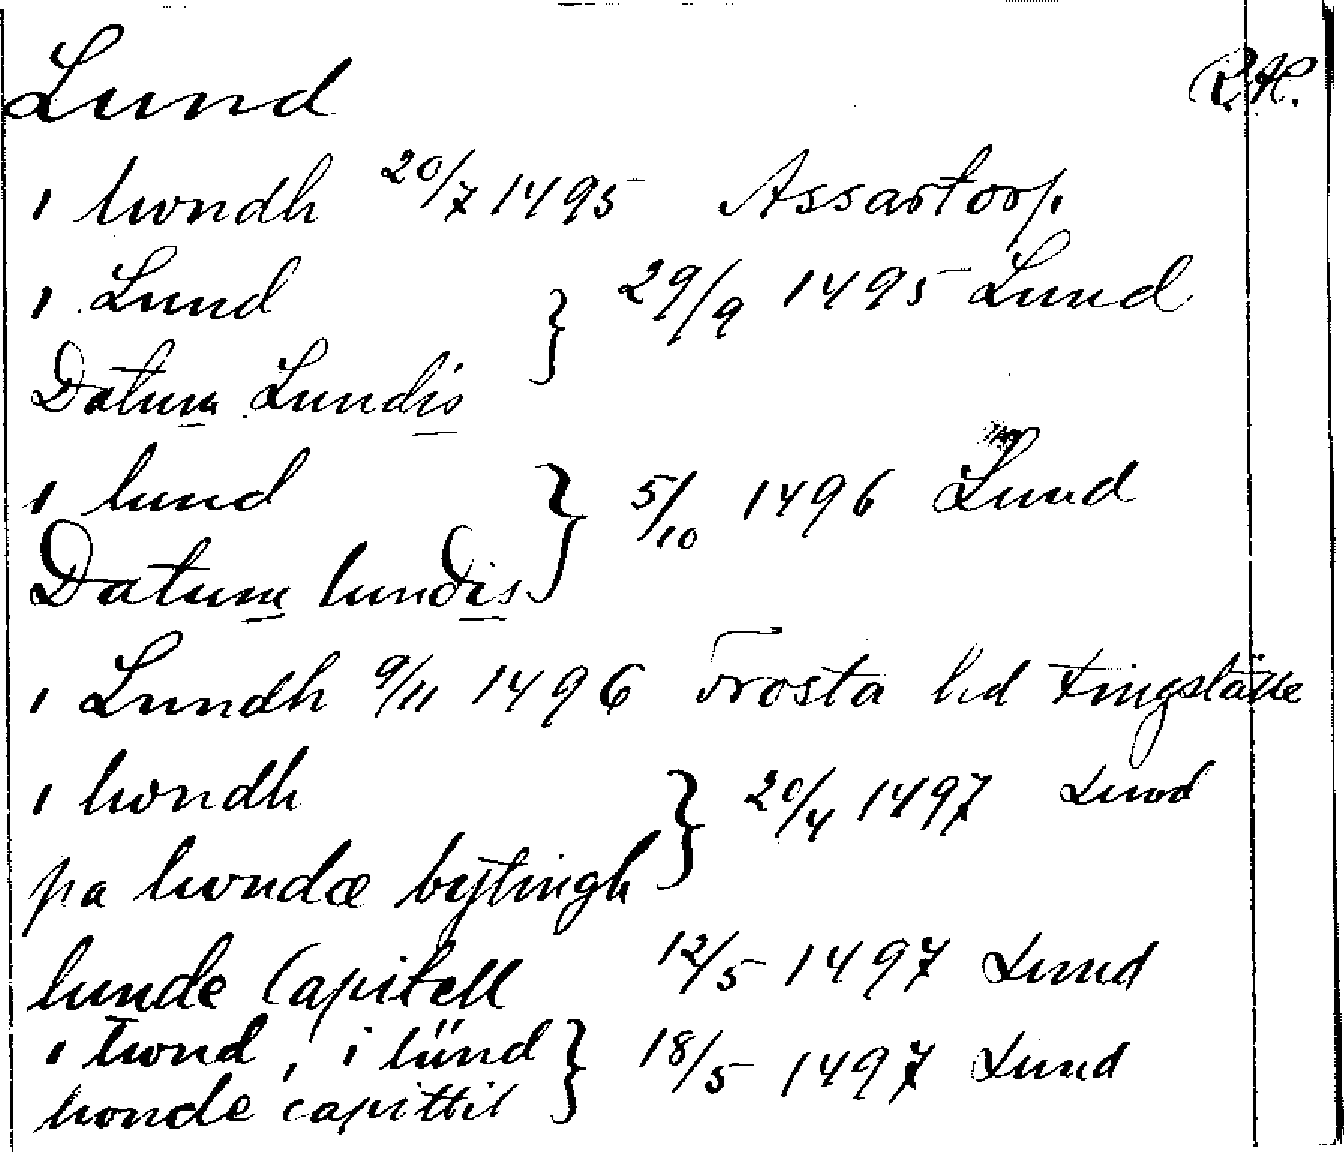 Lund R.A.
i lwndh 20/7 1495 Assartorp.
i Lund } 29/9 1495 Lund
Datum Lundis
i lund } 5/10 1496 Lund
Datum lundis
i Lundh 9/11 1496 Frosta hd tingställe
i lwndh } 20/4 1497 Lund
pa lwndæ bytingh
lunde Capitell 12/5 1497 Lund
i lwnd, i lünd } 18/5 1497 Lund
lwnde capittil